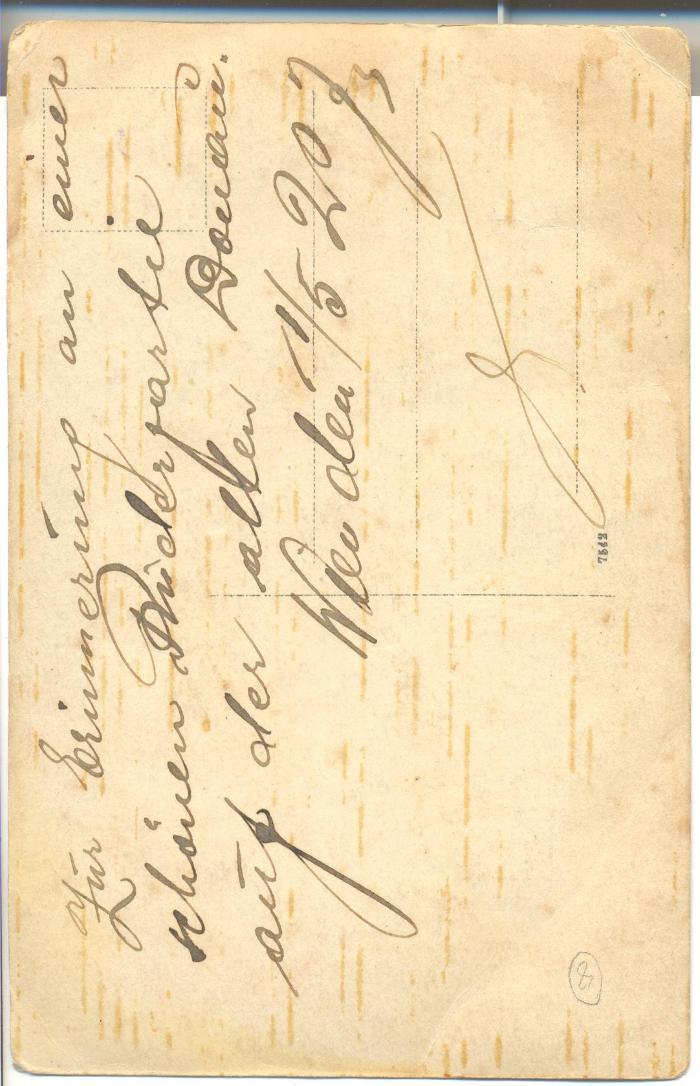 Zur Erinnerung an einer
schönen Ruderpartie
auf der alten Donau.
Wien den 1/5 20
7542
8